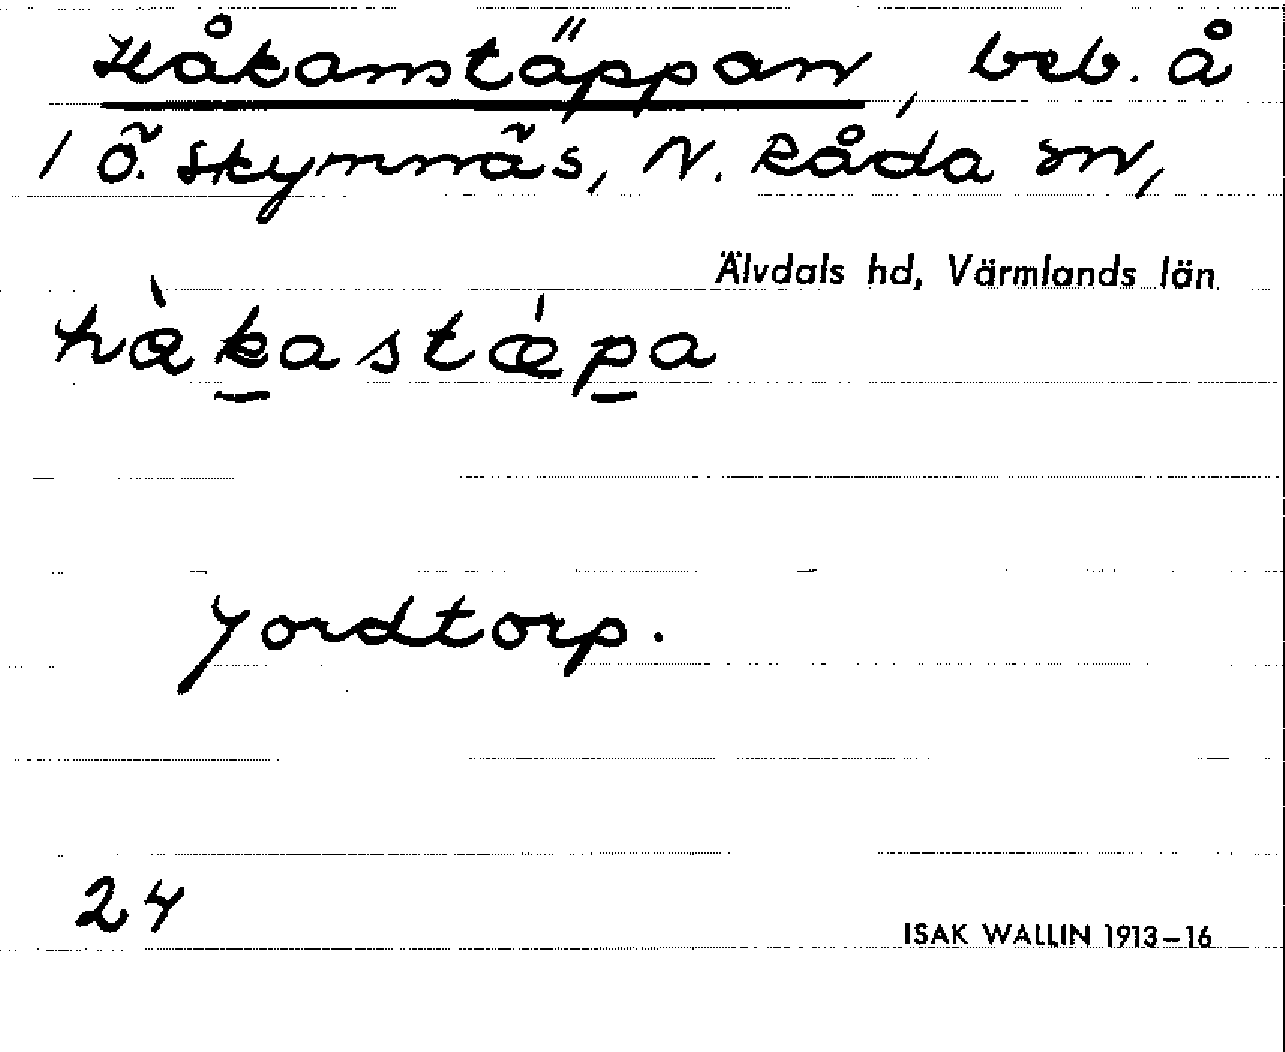 Håkanstäppan, beb. å
1 Ö. Skymnäs, N. Råda sn,
Älvdals hd, Värmlands län
hæ̀kastǽpa
Jordtorp.
24
ISAK WALLIN 1913–16